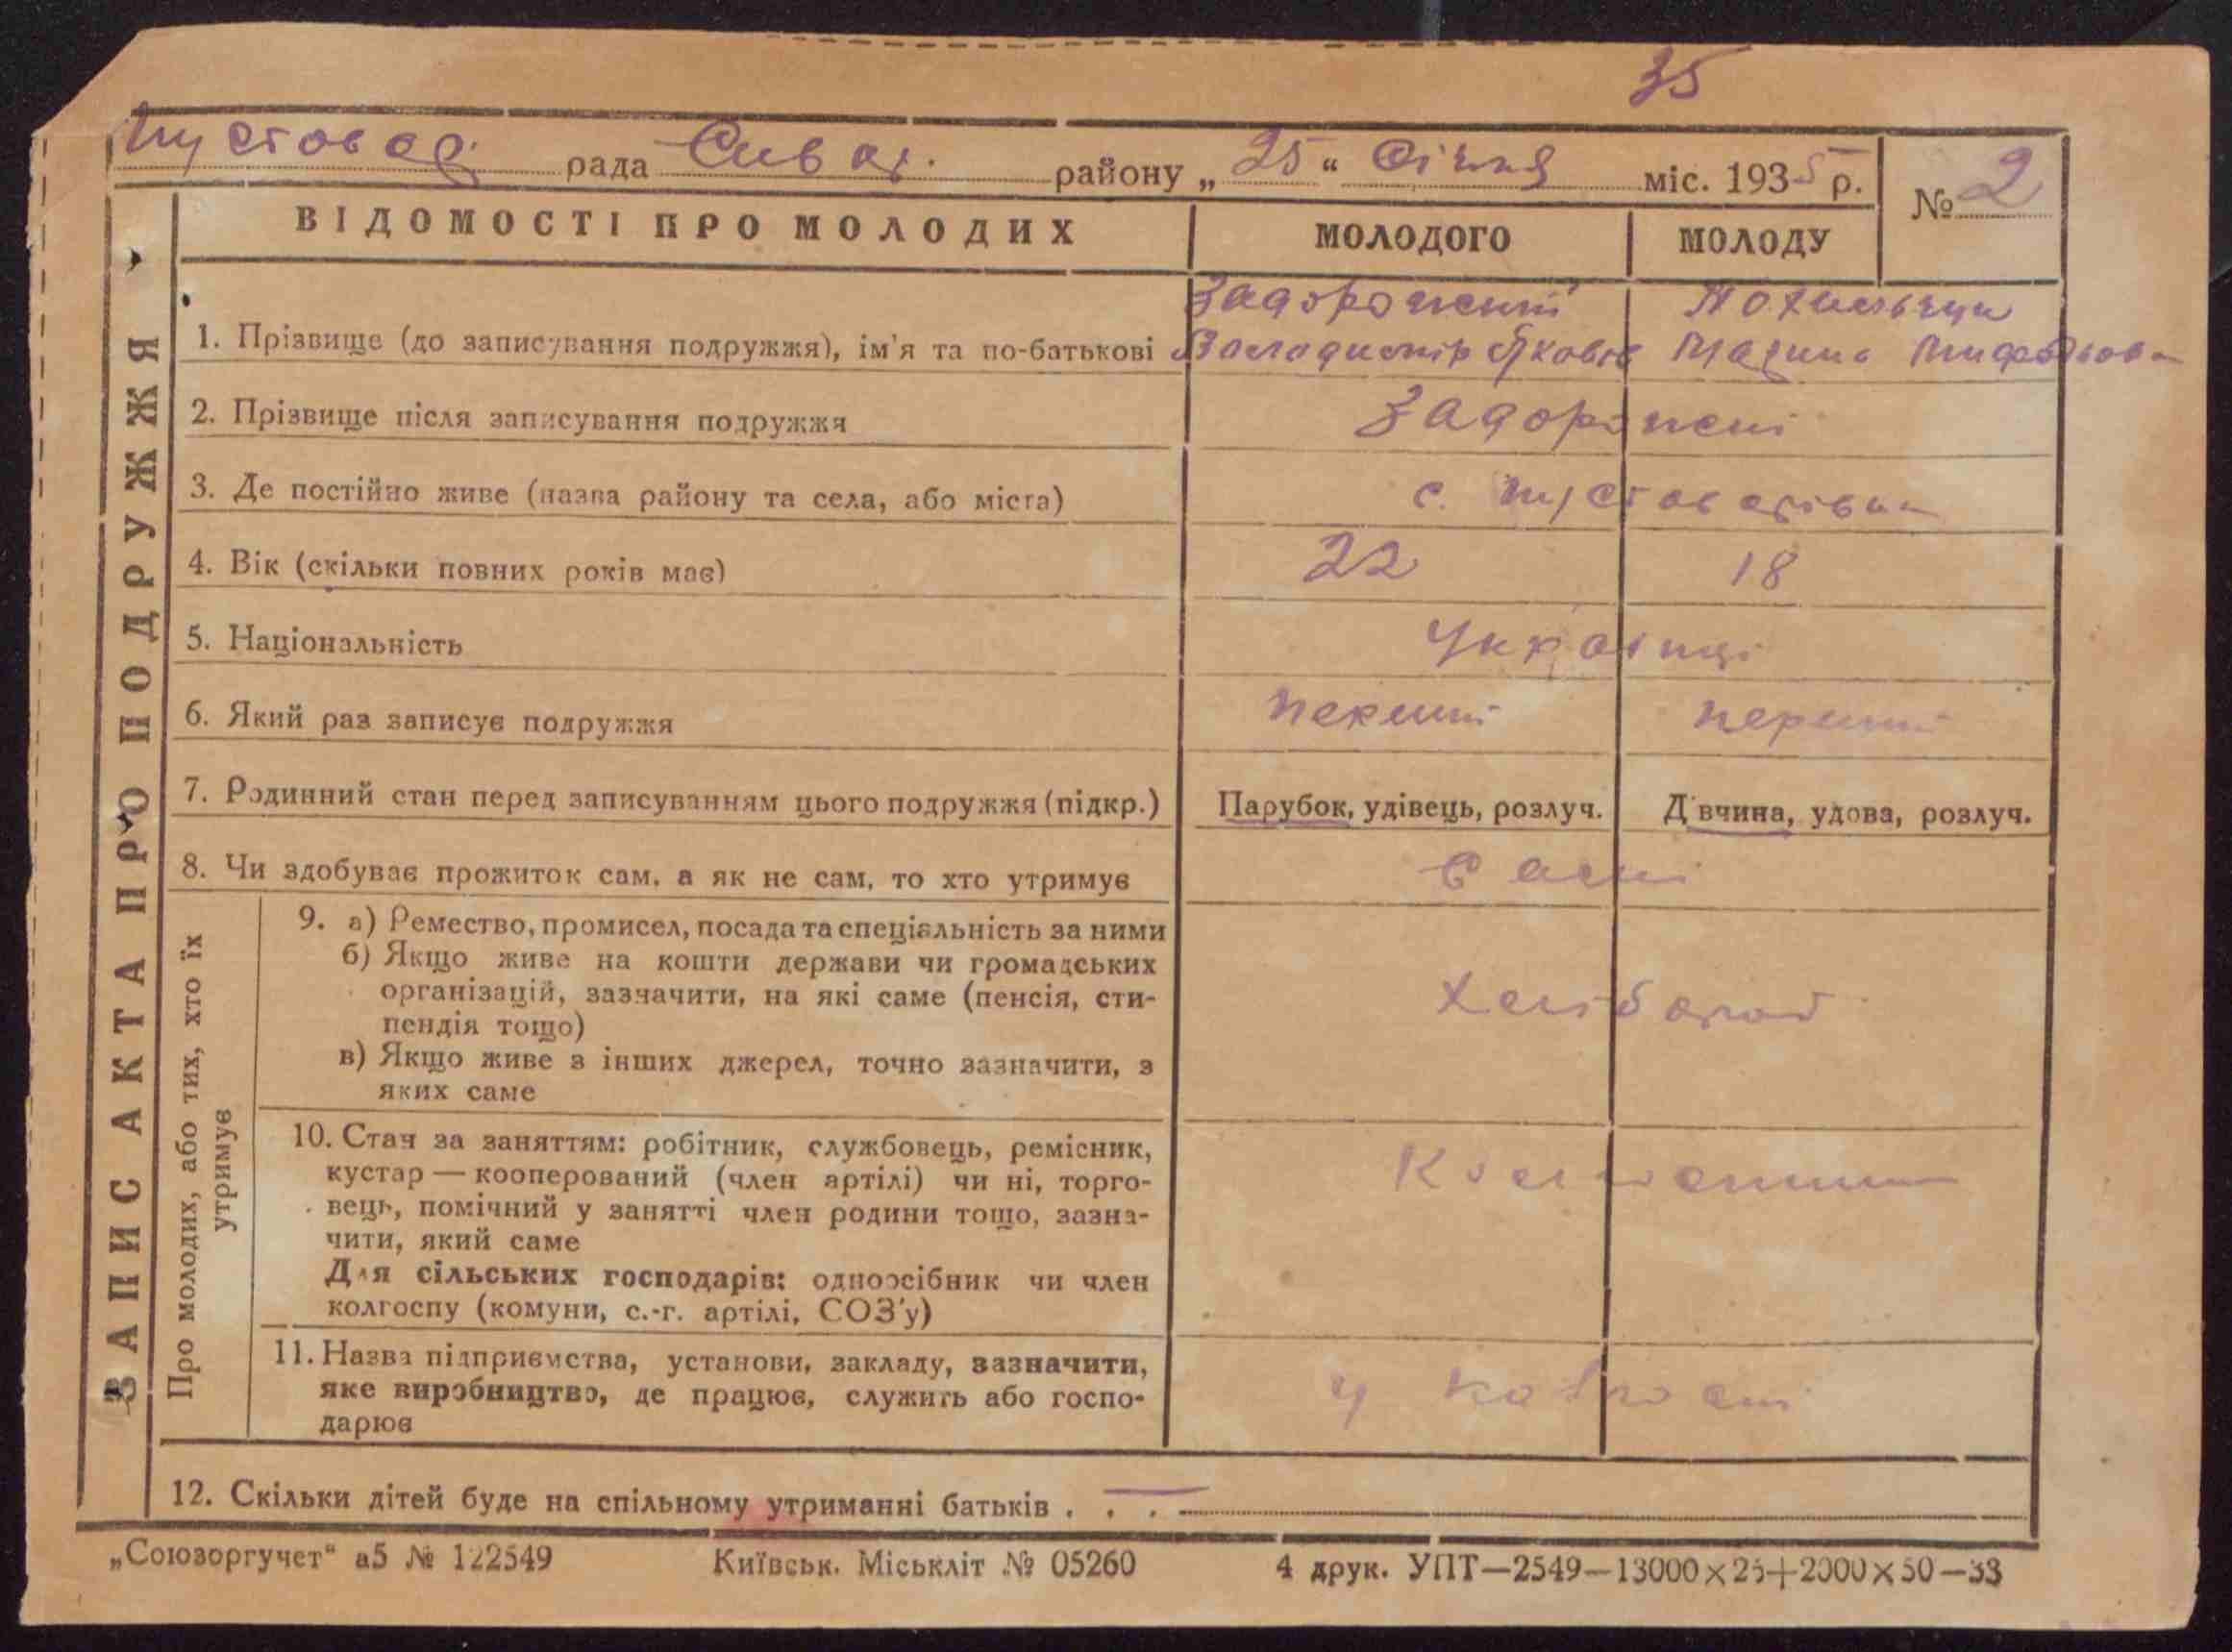 35
Пустовар. рада Сквир. району „25“ Січня міс. 1935 р.
№ 2
ЗАПИС АКТА ПРО ПОДРУЖЖЯ
ВІДОМОСТІ ПРО МОЛОДИХ
МОЛОДОГО
МОЛОДУ
1. Прізвище (до записування подружжя), ім'я та по-батькові
Задорожний
Володимир Яковів
Марина
2. Прізвище після записування подружжя
Задорожні
3. Де постійно живе (назва району та села, або міста)
с. Пустоварівка
4. Вік (скільки повних років має)
22
18
5. Національність
Українці
6. Який раз записує подружжя
перший
перший
7. Родинний стан перед записуванням цього подружжя (підкр.)
Парубок, удівець, розлуч.
Дівчина, удова, розлуч.
8. Чи здобуває прожиток сам, а як не сам, то хто утримує
Про молодих, або тих, хто їх
утримує
9. а) Ремество, промисел, посада та спеціяльність за ними
б) Якщо живе на кошти держави чи громадських
організацій, зазначити, на які саме (пенсія, сти-
пендія тощо)
в) Якщо живе з інших джерел, точно зазначити, з
яких саме
Хлібороб
10. Стан за заняттям: робітник, службовець, ремісник,
кустар — кооперований (член артілі) чи ні, торго-
вець, помічний у занятті член родини тощо, зазна-
чити, який саме
Для сільських господарів: одноосібник чи член
колгоспу (комуни, с.-г. артілі, СОЗ'у)
11. Назва підприємства, установи, закладу, зазначити,
яке виробництво, де працює, служить або госпо-
дарює
у колгоспі
12. Скільки дітей буде на спільному утриманні батьків . . . —
„Союзоргучет“ а5 № 122549
Київськ. Міськліт № 05260
4 друк. УПТ—2549—13000×25+2000×50—33